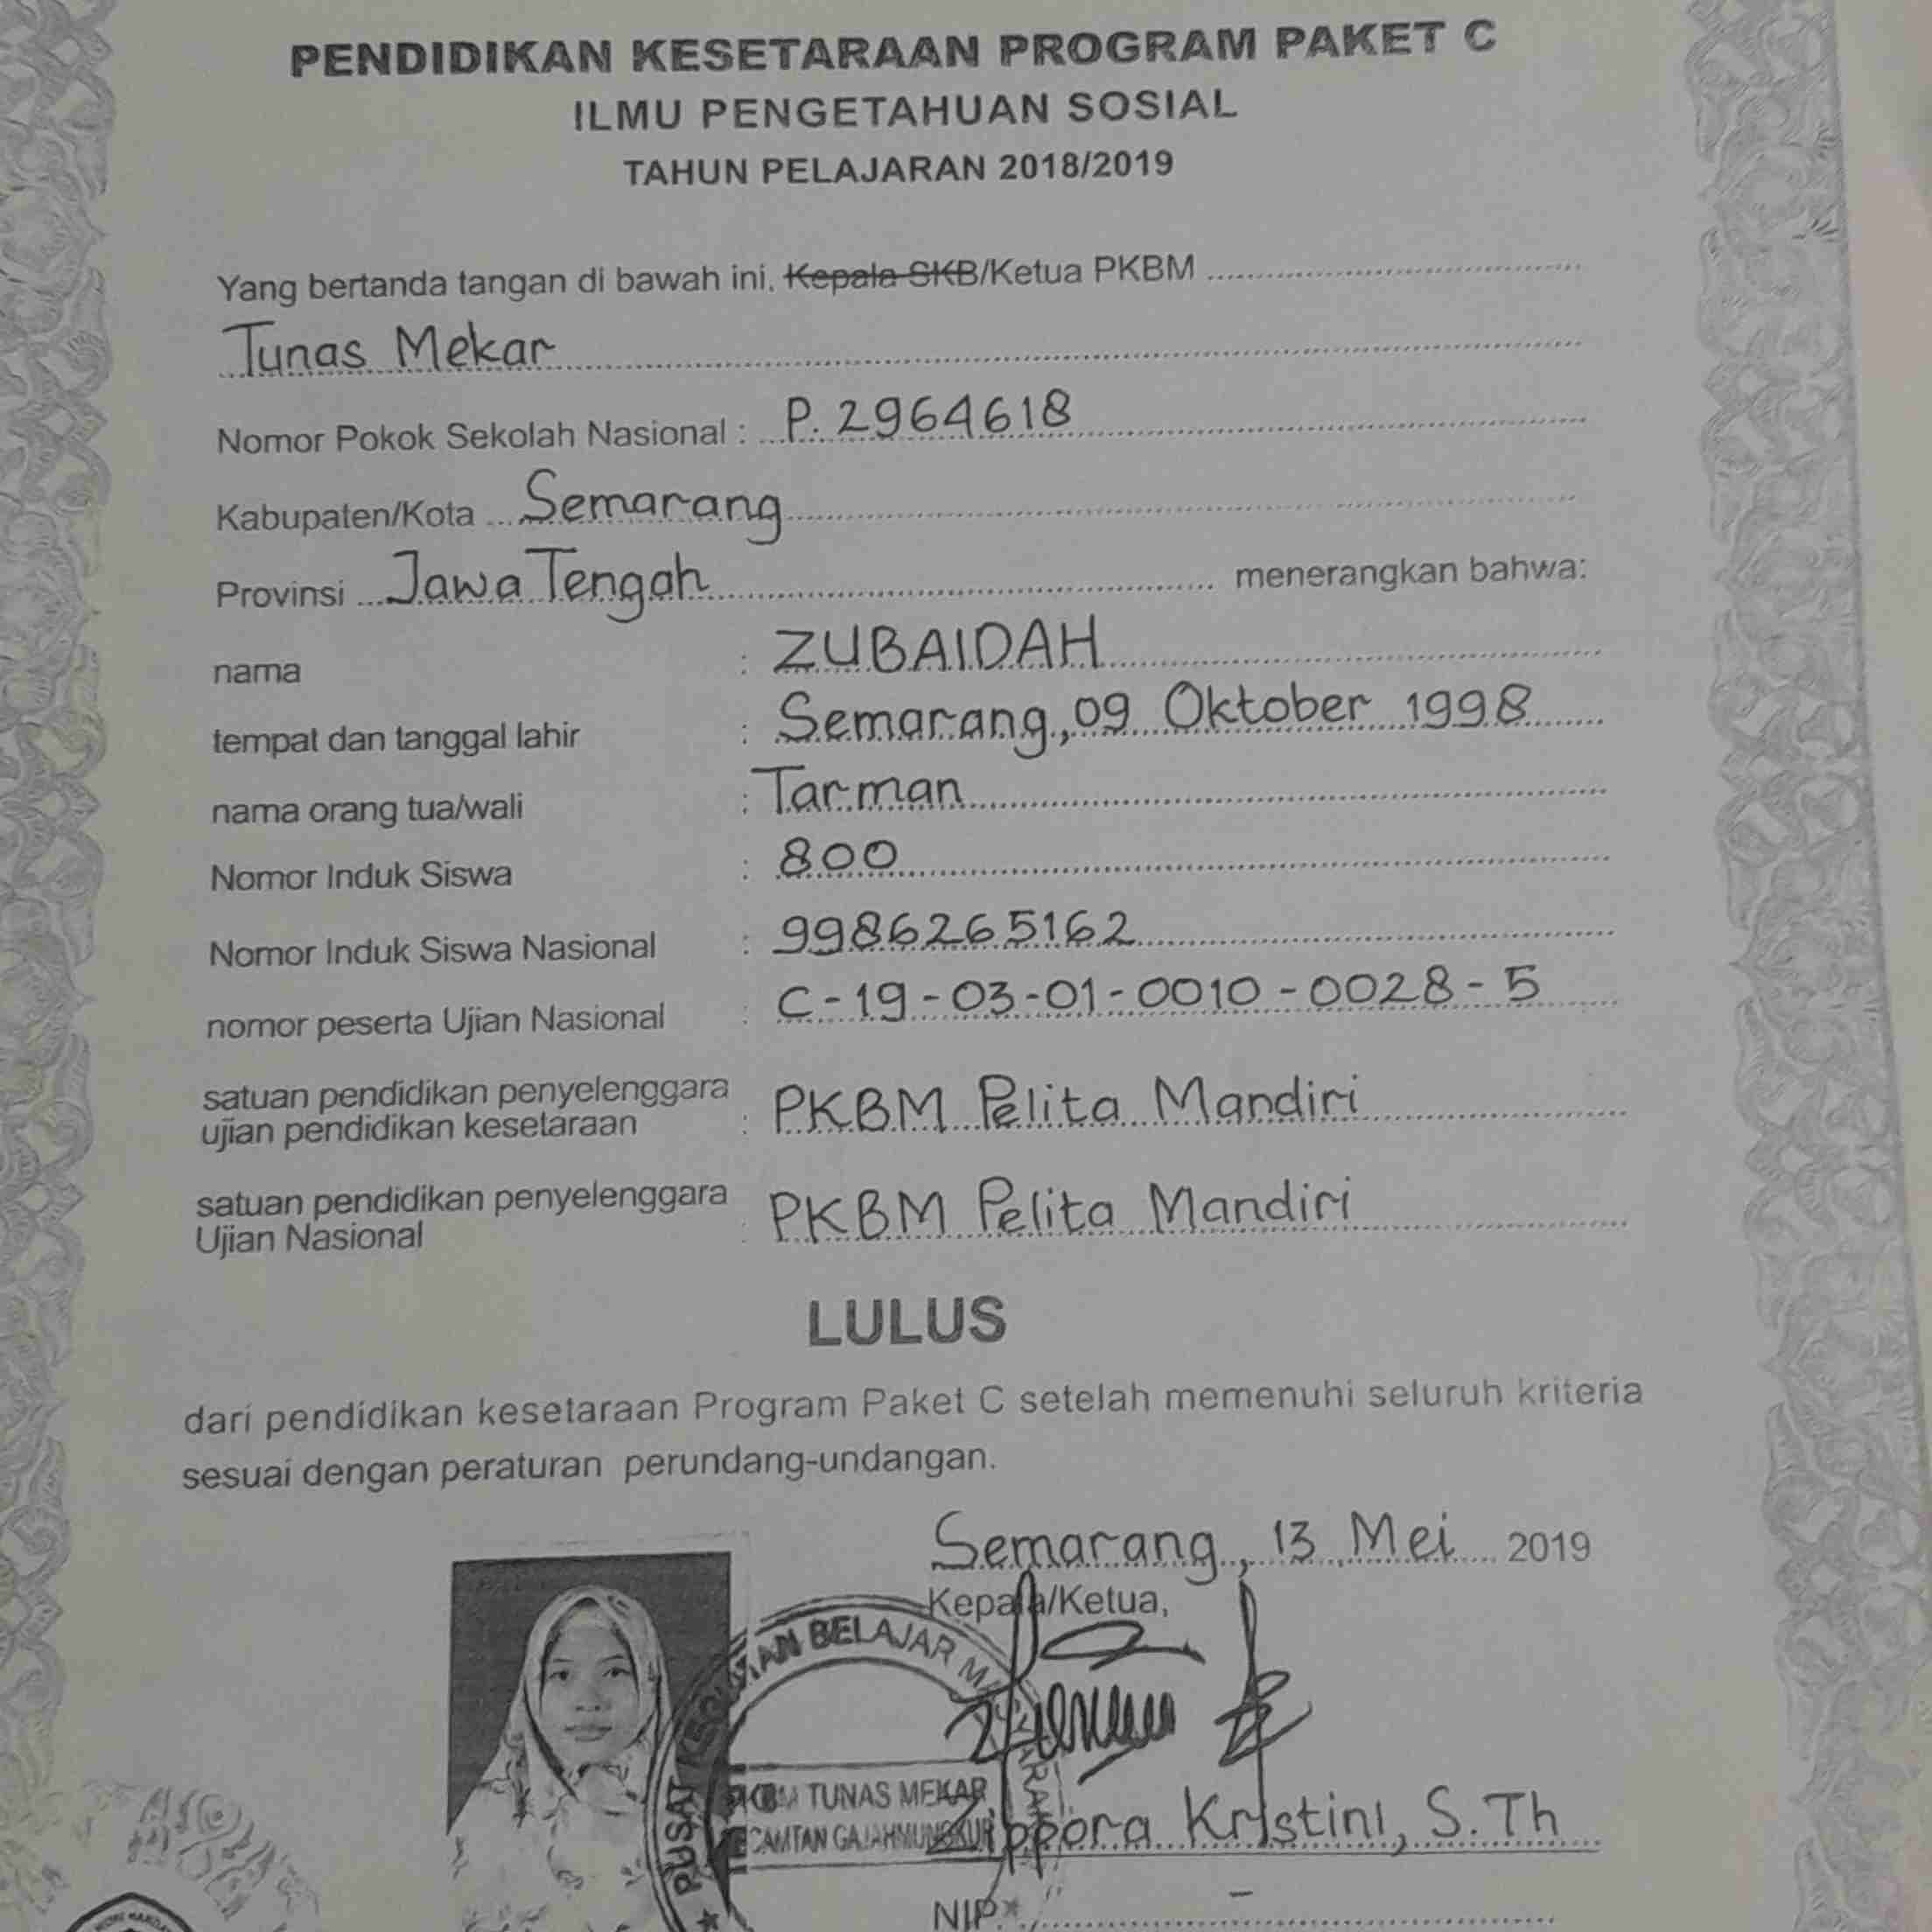 PENDIDIKAN KESETARAAN PROGRAM PAKET C
ILMU PENGETAHUAN SOSIAL
TAHUN PELAJARAN 2018/2019
Yang bertanda tangan di bawah ini, Kepala SKB/Ketua PKBM
Tunas Mekar
Nomor Pokok Sekolah Nasional : P. 2964618
Kabupaten/Kota Semarang
Provinsi Jawa Tengah menerangkan bahwa:
nama : ZUBAIDAH
tempat dan tanggal lahir : Semarang, 09 Oktober 1998
nama orang tua/wali : Tarman
Nomor Induk Siswa : 800
Nomor Induk Siswa Nasional : 9986265162
nomor peserta Ujian Nasional : C-19-03-01-0010-0028-5
satuan pendidikan penyelenggara
ujian pendidikan kesetaraan : PKBM Pelita Mandiri
satuan pendidikan penyelenggara
Ujian Nasional : PKBM Pelita Mandiri
LULUS
dari pendidikan kesetaraan Program Paket C setelah memenuhi seluruh kriteria
sesuai dengan peraturan perundang-undangan.
Semarang, 13 Mei 2019
Kepala/Ketua,
PUSAT BELAJAR
TUNAS MEKAR
Zippora Kristini, S.Th
NIP. -